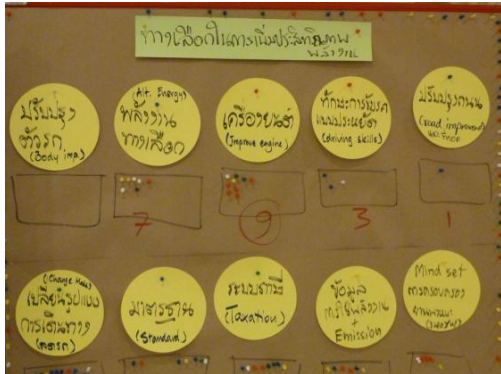 ทางเลือกในการเพิ่มประสิทธิภาพ
พลังงาน
ปรับปรุง
ตัวรถ
(Body imp.)
(Alt. Energy)
พลังงาน
ทางเลือก
เครื่องยนต์
(Improve engine)
ทักษะการขับรถ
แบบประหยัด
(driving skills)
ปรับปรุงถนน
(road improvement)
7
9
3
1
(Change Mode)
เปลี่ยนรูปแบบ
การเดินทาง
มาตรฐาน
(Standard)
ระบบภาษี
(Taxation)
ข้อมูล
การใช้พลังงาน
+
Emission
Mind set
การครอบครอง